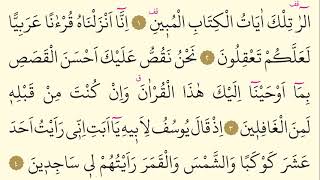 الٓرٰ تِلْكَ اٰيَاتُ الْكِتَابِ الْمُب۪ينِ ۠ ﴿١﴾ اِنَّٓا اَنْزَلْنَاهُ قُرْءٰنًا عَرَبِيًّا
لَعَلَّكُمْ تَعْقِلُونَ ﴿٢﴾ نَحْنُ نَقُصُّ عَلَيْكَ اَحْسَنَ الْقَصَصِ
بِمَٓا اَوْحَيْنَٓا اِلَيْكَ هٰذَا الْقُرْاٰنَۗ وَاِنْ كُنْتَ مِنْ قَبْلِه۪
لَمِنَ الْغَافِل۪ينَ ﴿٣﴾ اِذْ قَالَ يُوسُفُ لِاَب۪يهِ يَٓا اَبَتِ اِنّ۪ي رَاَيْتُ اَحَدَ
عَشَرَ كَوْكَبًا وَالشَّمْسَ وَالْقَمَرَ رَاَيْتُهُمْ ل۪ي سَاجِد۪ينَ ﴿٤﴾